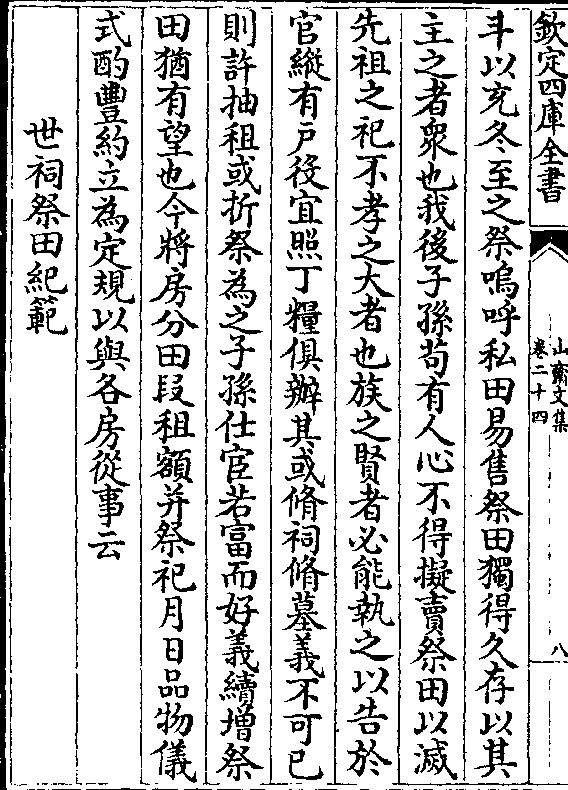 欽定四庫全書
山齋文集
卷二十四
八
斗以充冬至之祭嗚呼私田易售祭田獨得久存以其
主之者衆也我後子孫苟有人心不得擬賣祭田以滅
先祖之祀不孝之大者也族之賢者必能執之以告於
官縱有戸役宜照丁糧俱辦其或脩祠脩墓義不可已
則許抽租或折祭為之子孫仕宦若富而好義續增祭
田猶有望也今將房分田段租額并祭祀月日品物儀
式酌豐約立為定規以與各房從事云
世祠祭田紀範